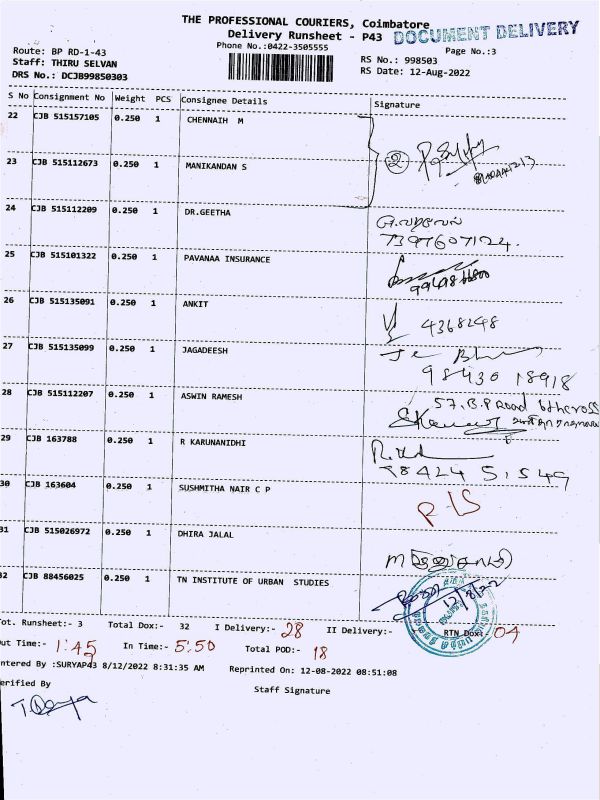 THE PROFESSIONAL COURIERS, Coimbatore
Delivery Runsheet - P43 DOCUMENT DELIVERY
Phone No.:0422-3505555 Page No.:3
Route: BP RD-1-43 RS No.: 998503
Staff: THIRU SELVAN RS Date: 12-Aug-2022
DRS No.: DCJB99850303
S No Consignment No Weight PCS Consignee Details Signature
22 CJB 515157105 0.250 1 CHENNAIH M
23 CJB 515112673 0.250 1 MANIKANDAN S
2
24 CJB 515112209 0.250 1 DR.GEETHA
7397607124.
25 CJB 515101322 0.250 1 PAVANAA INSURANCE
26 CJB 515135091 0.250 1 ANKIT
4368248
27 CJB 515135099 0.250 1 JAGADEESH
98430 18918
28 CJB 515112207 0.250 1 ASWIN RAMESH
57, B.P Road 6th cross
29 CJB 163788 0.250 1 R KARUNANIDHI
30 CJB 163604 0.250 1 SUSHMITHA NAIR C P
31 CJB 515026972 0.250 1 DHIRA JALAL
32 CJB 88456025 0.250 1 TN INSTITUTE OF URBAN STUDIES
12/8/22
Tot. Runsheet:- 3 Total Dox:- 32 I Delivery:- 28 II Delivery:- RTN Dox:- 04
Out Time:- 1:45 In Time:- 5:50 Total POD:- 18
Entered By :SURYAP43 8/12/2022 8:31:35 AM Reprinted On: 12-08-2022 08:51:08
Verified By Staff Signature